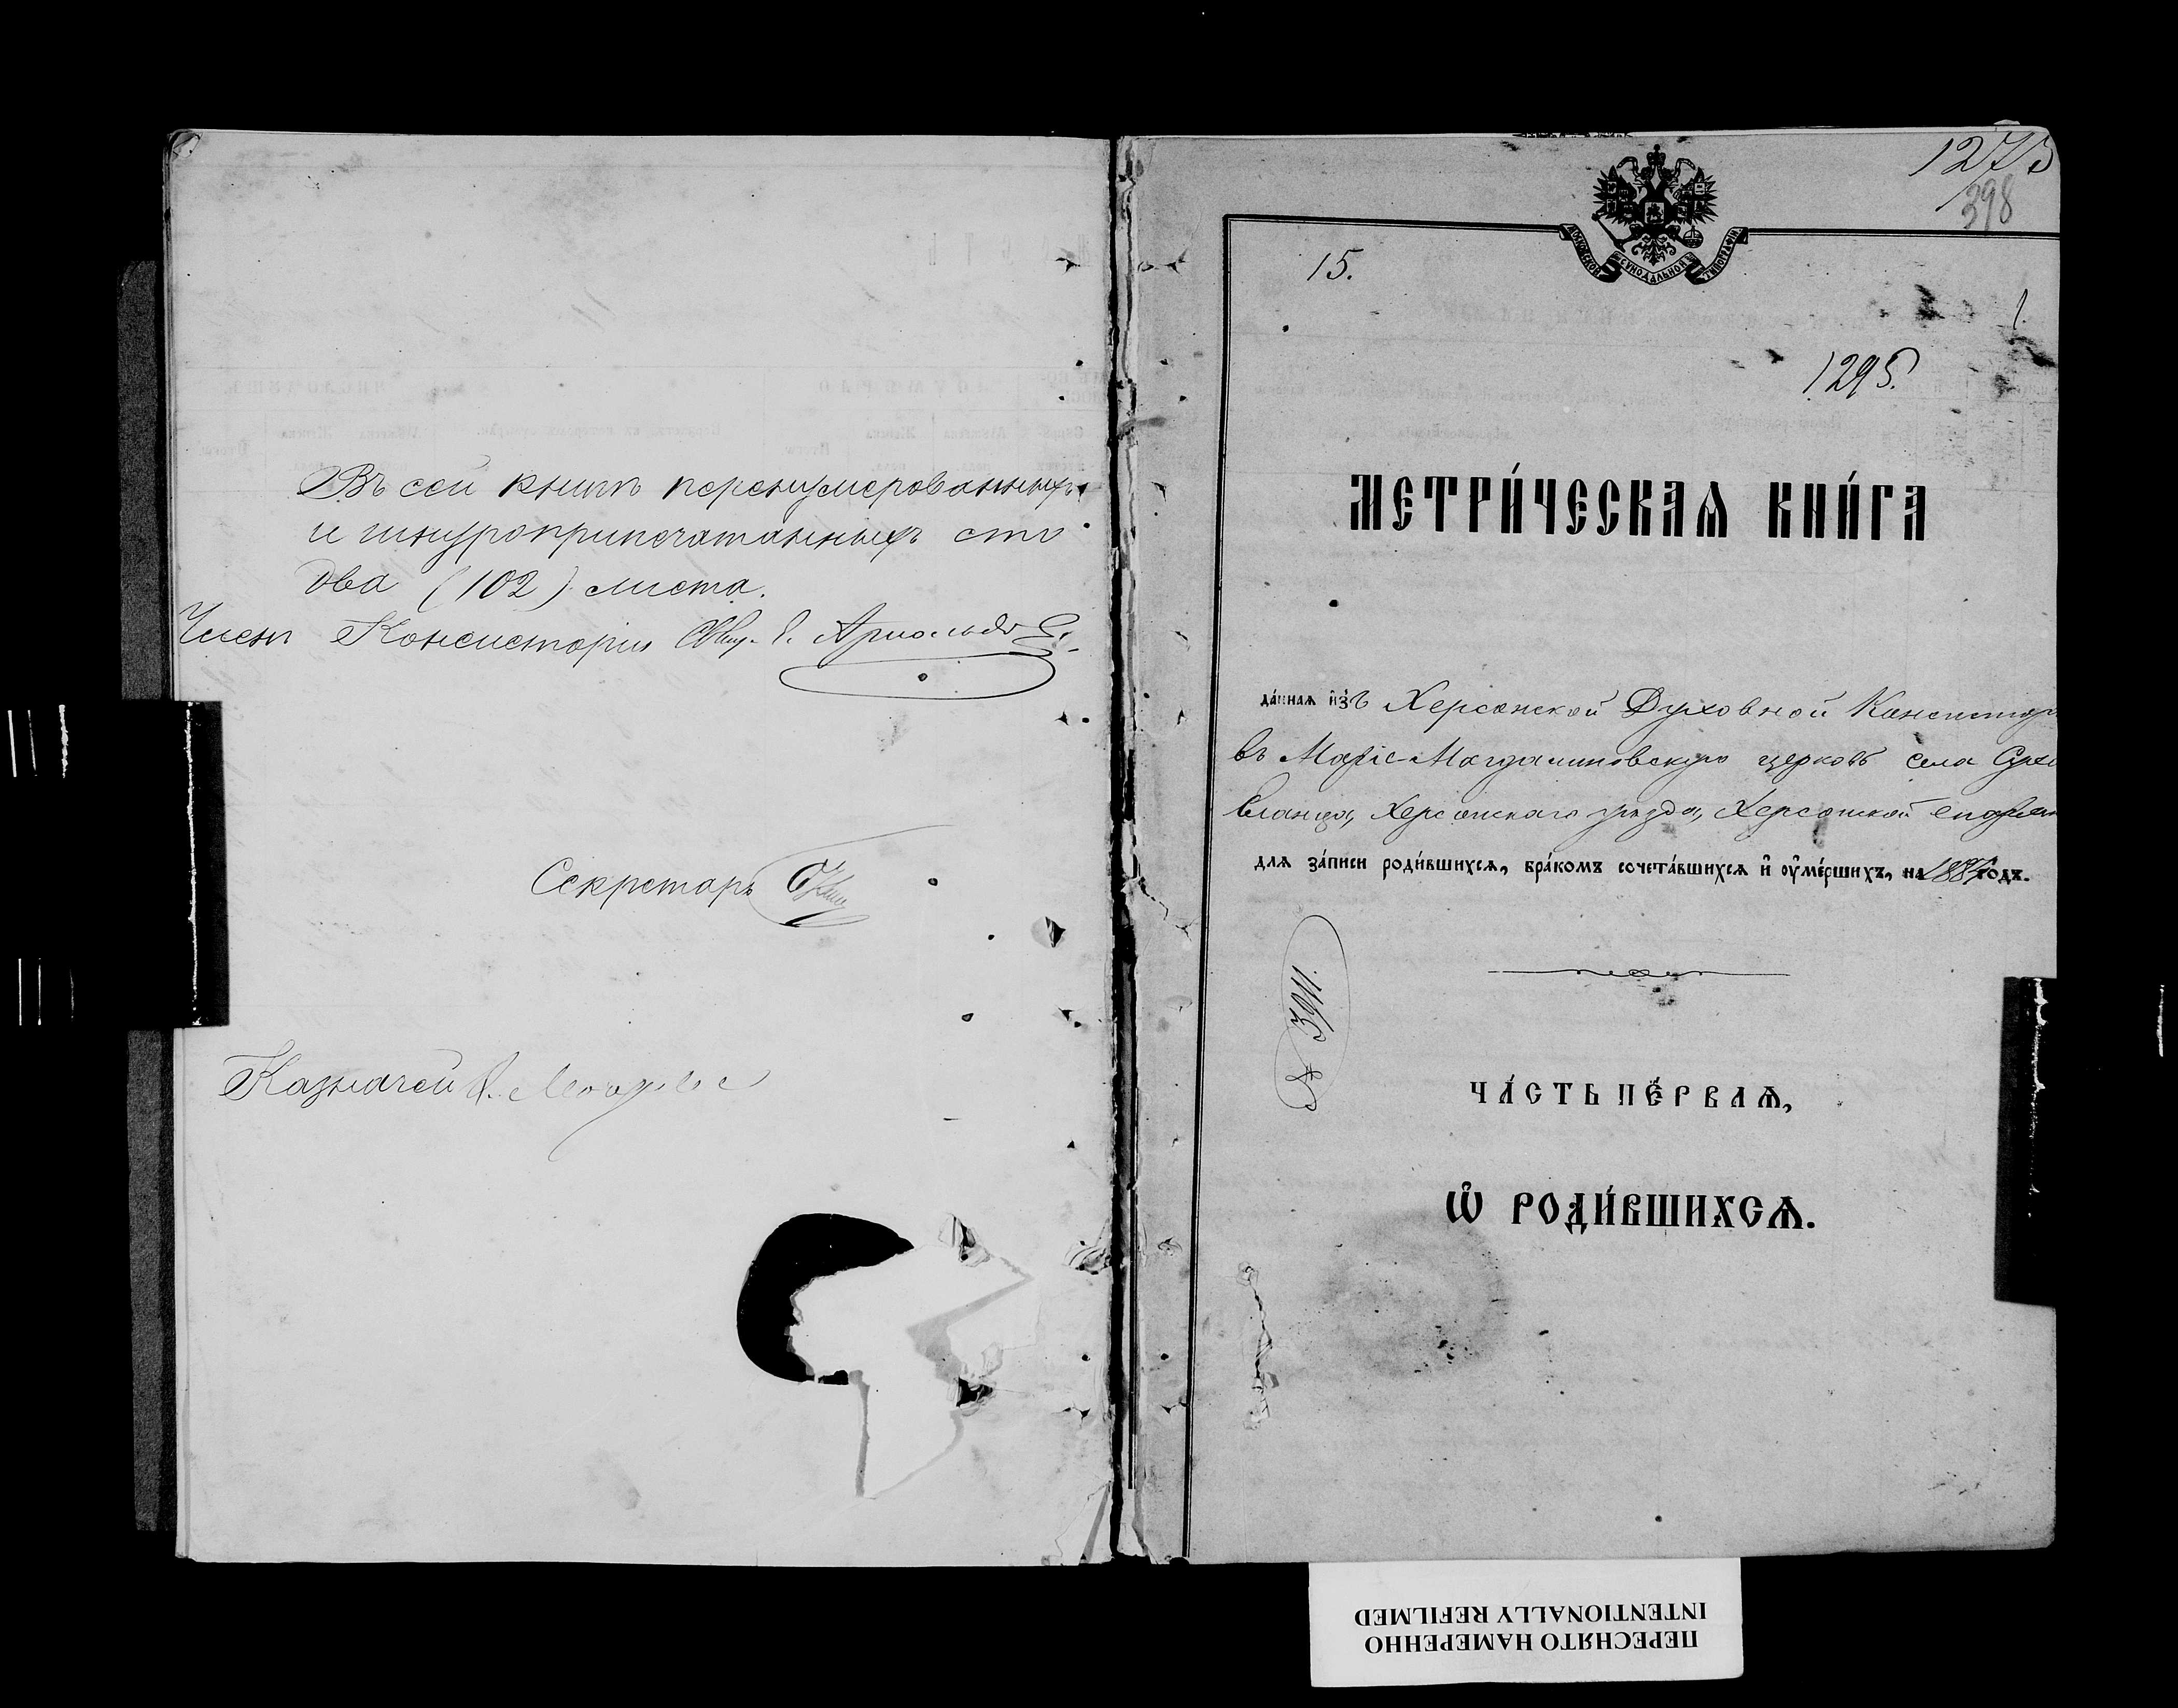 Въ сей книгѣ перенумерованныхъ
и шнуроприпечатанныхъ сто
два (102) листа.
Членъ Консисторіи
Секретарь
Казначей
1275
398
МОСКОВСКОЙ СѴНОДАЛЬНОЙ ТИПОГРАФІИ
15.
1
1295.
МЕТРИ́ЧЕСКАѦ КНИ́ГА
да́ннаѧ и҆зъ Херсонской Духовной Консистор
въ Маріе-Магдалиновскую церковь села
Еланца, Херсонскаго уѣзда, Херсонской епархі
длѧ за́писи роди́вшихсѧ, бра́комъ сочета́вшихсѧ и҆ ᲂу҆ме́ршихъ, на годъ.
№ 3911.
ЧА́СТЬ ПЕ́РВАѦ,
Ѡ҆ РОДИ́ВШИХСѦ.
ПЕРЕСНЯТО НАМЕРЕННО
INTENTIONALLY REFILMED